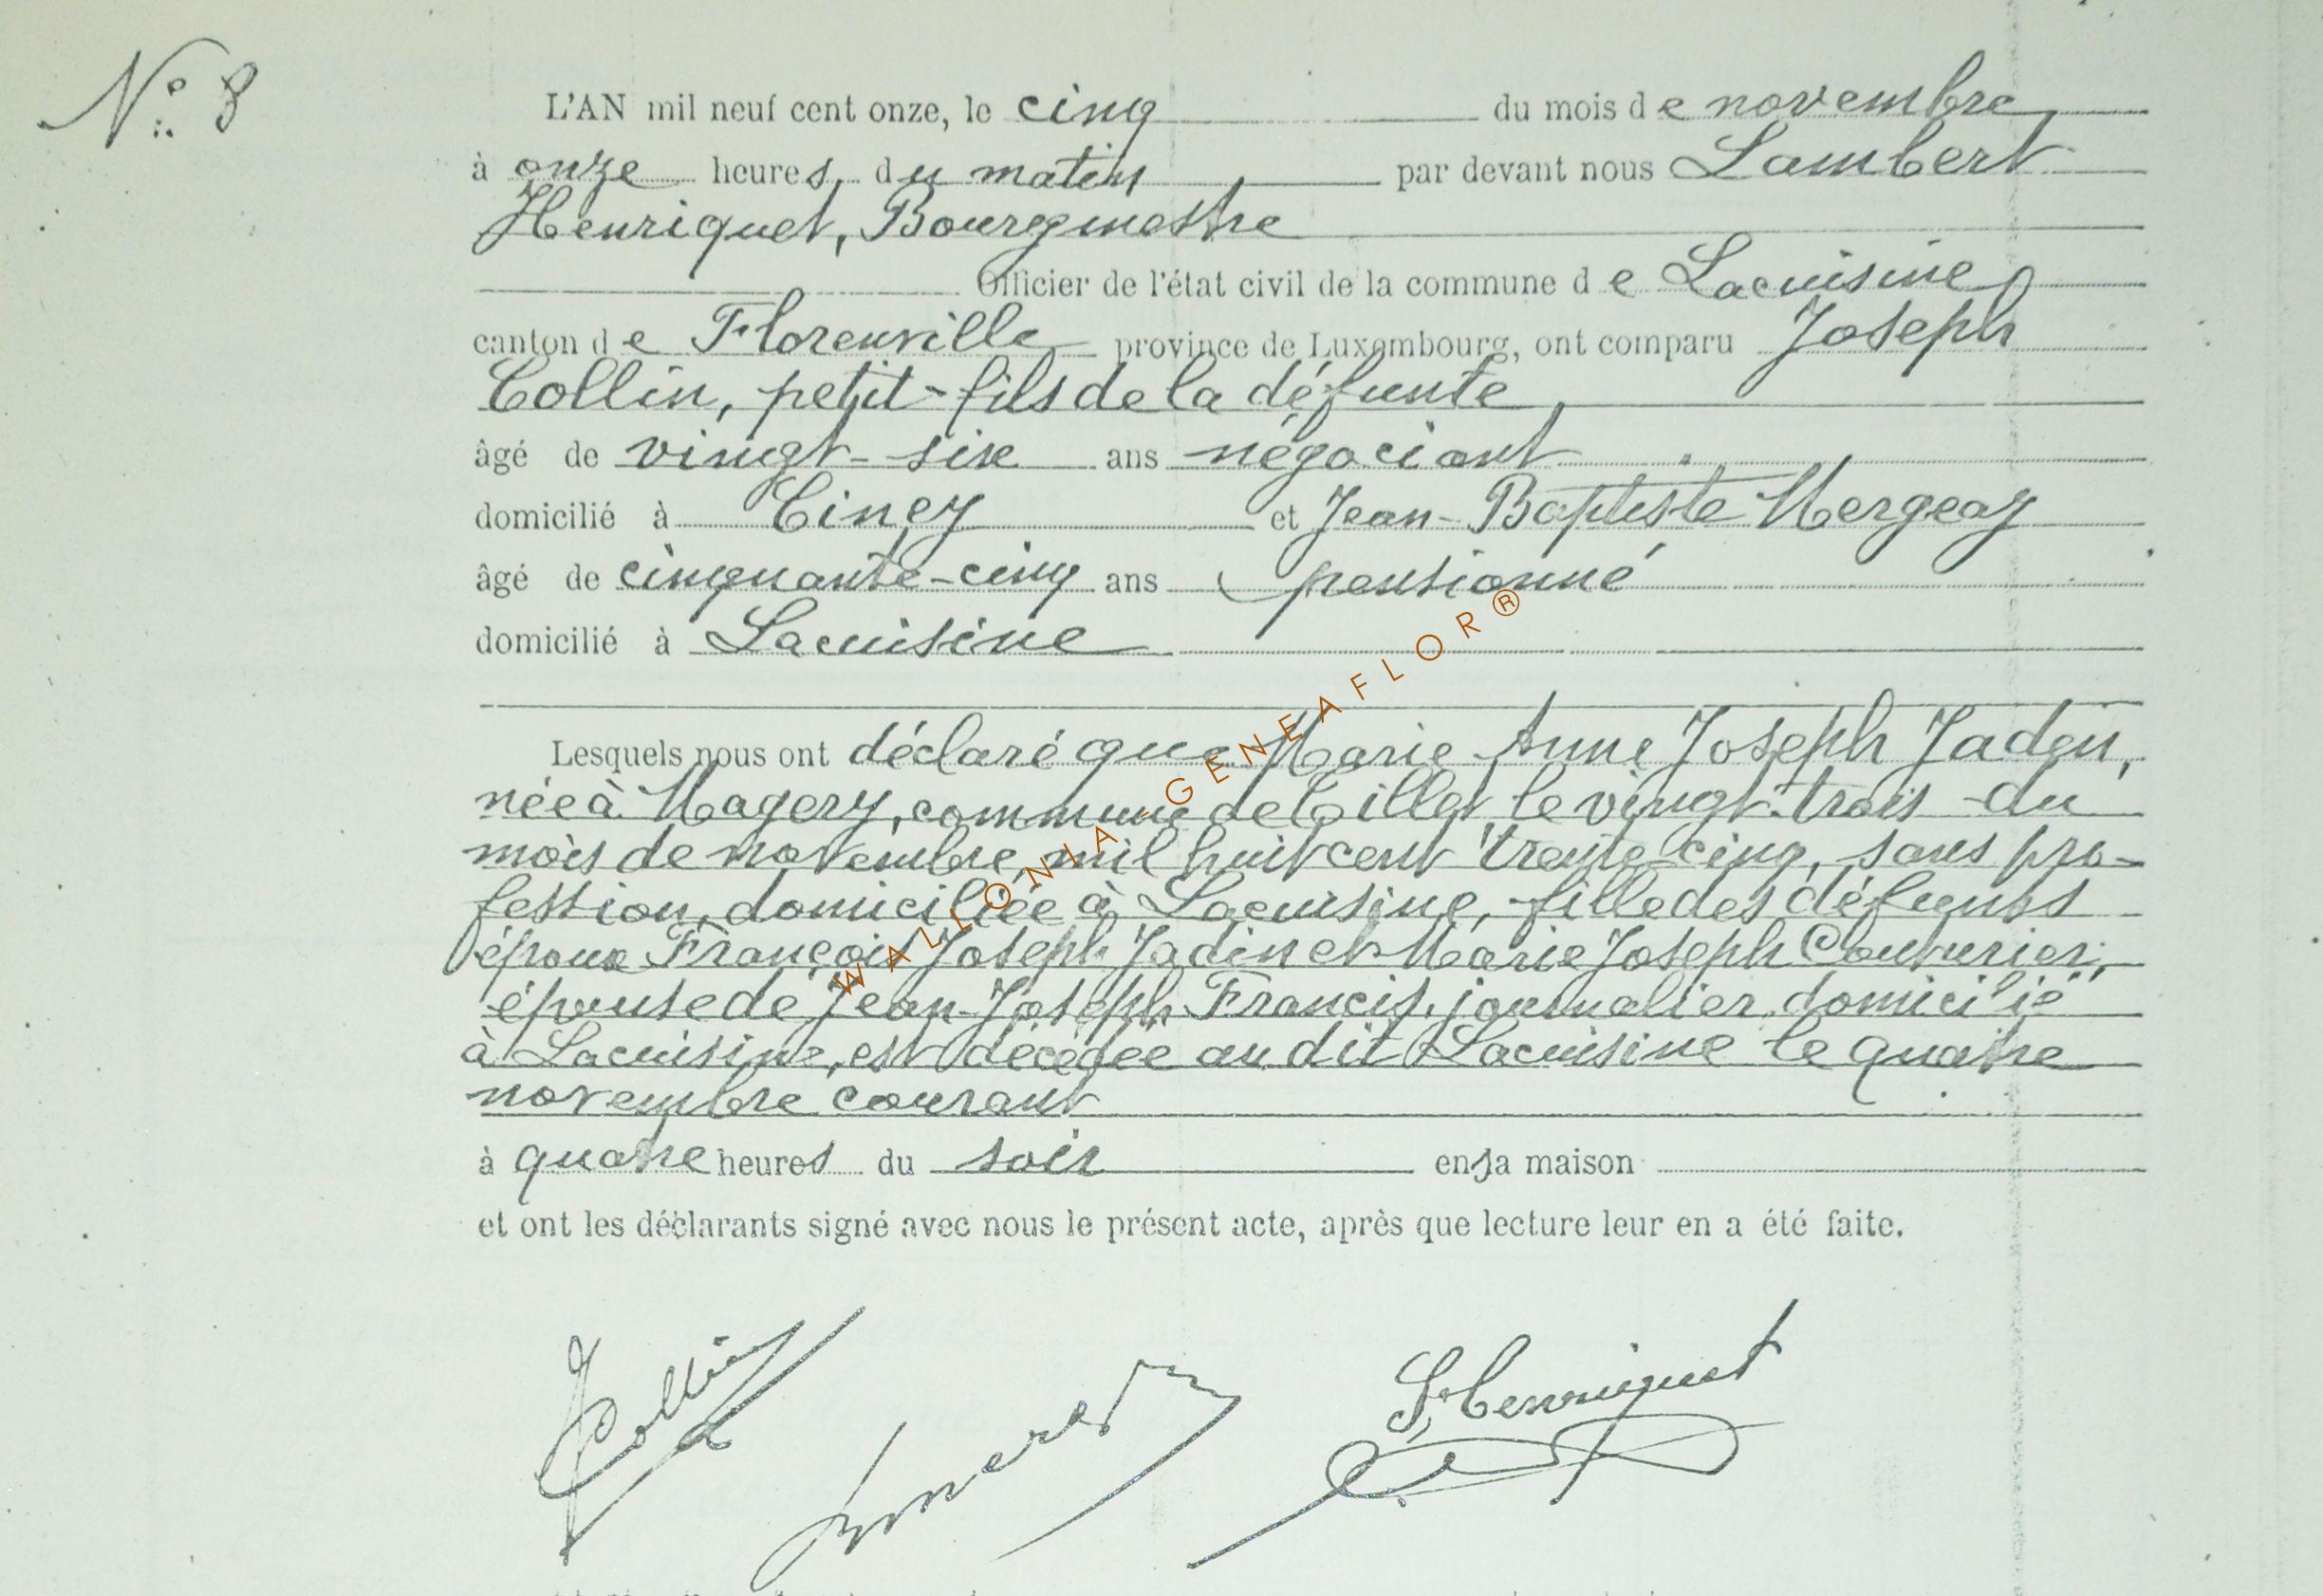 N° 8
L'AN mil neuf cent onze, le cinq du mois de novembre
à onze heures, du matin, par devant nous Lambert
Henriquet, Bourgmestre
Officier de l'état civil de la commune de Lacuisine,
canton de Florenville province de Luxembourg, ont comparu Joseph
Collin, petit-fils de la défunte,
âgé de vingt-six ans négociant
domicilié à Ciney et Jean-Baptiste Mergeay
âgé de cinquante-cinq ans pensionné
domicilié à Lacuisine
Lesquels nous ont déclaré que Marie Anne Joseph Jadin,
née à Magery, commune de Tillet, le vingt-trois du
mois de novembre, mil huit cent trente-cinq, sans pro-
fession, domiciliée à Lacuisine, fille des défunts
époux François Joseph Jadin et Marie Joseph Couturier,
épouse de Jean-Joseph Francis, journalier, domicilié
à Lacuisine, est décédée au dit Lacuisine le quatre
novembre courant
à quatre heures du soir en sa maison
et ont les déclarants signé avec nous le présent acte, après que lecture leur en a été faite.
JCollin
L. Henriquet
WALLONIA - GENEAFLOR®